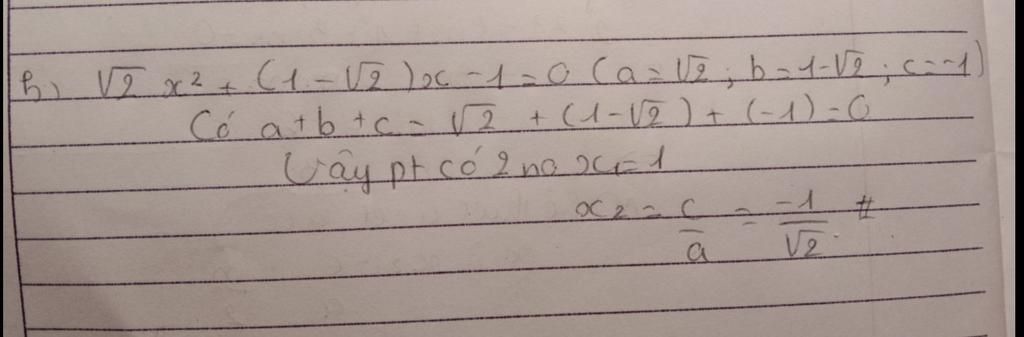 b) √2 x² + (1 - √2)x - 1 = 0 (a = √2 ; b = 1-√2 ; c = -1)
Có a + b + c = √2 + (1-√2) + (-1) = 0
Vậy pt có 2 no x₁ = 1
x₂ = c/a = -1/√2 #